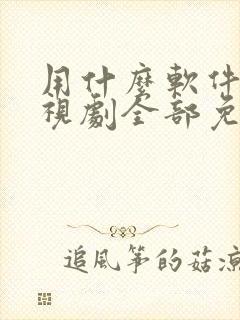 用什麼軟件
視劇全部免
追風箏的菇涼